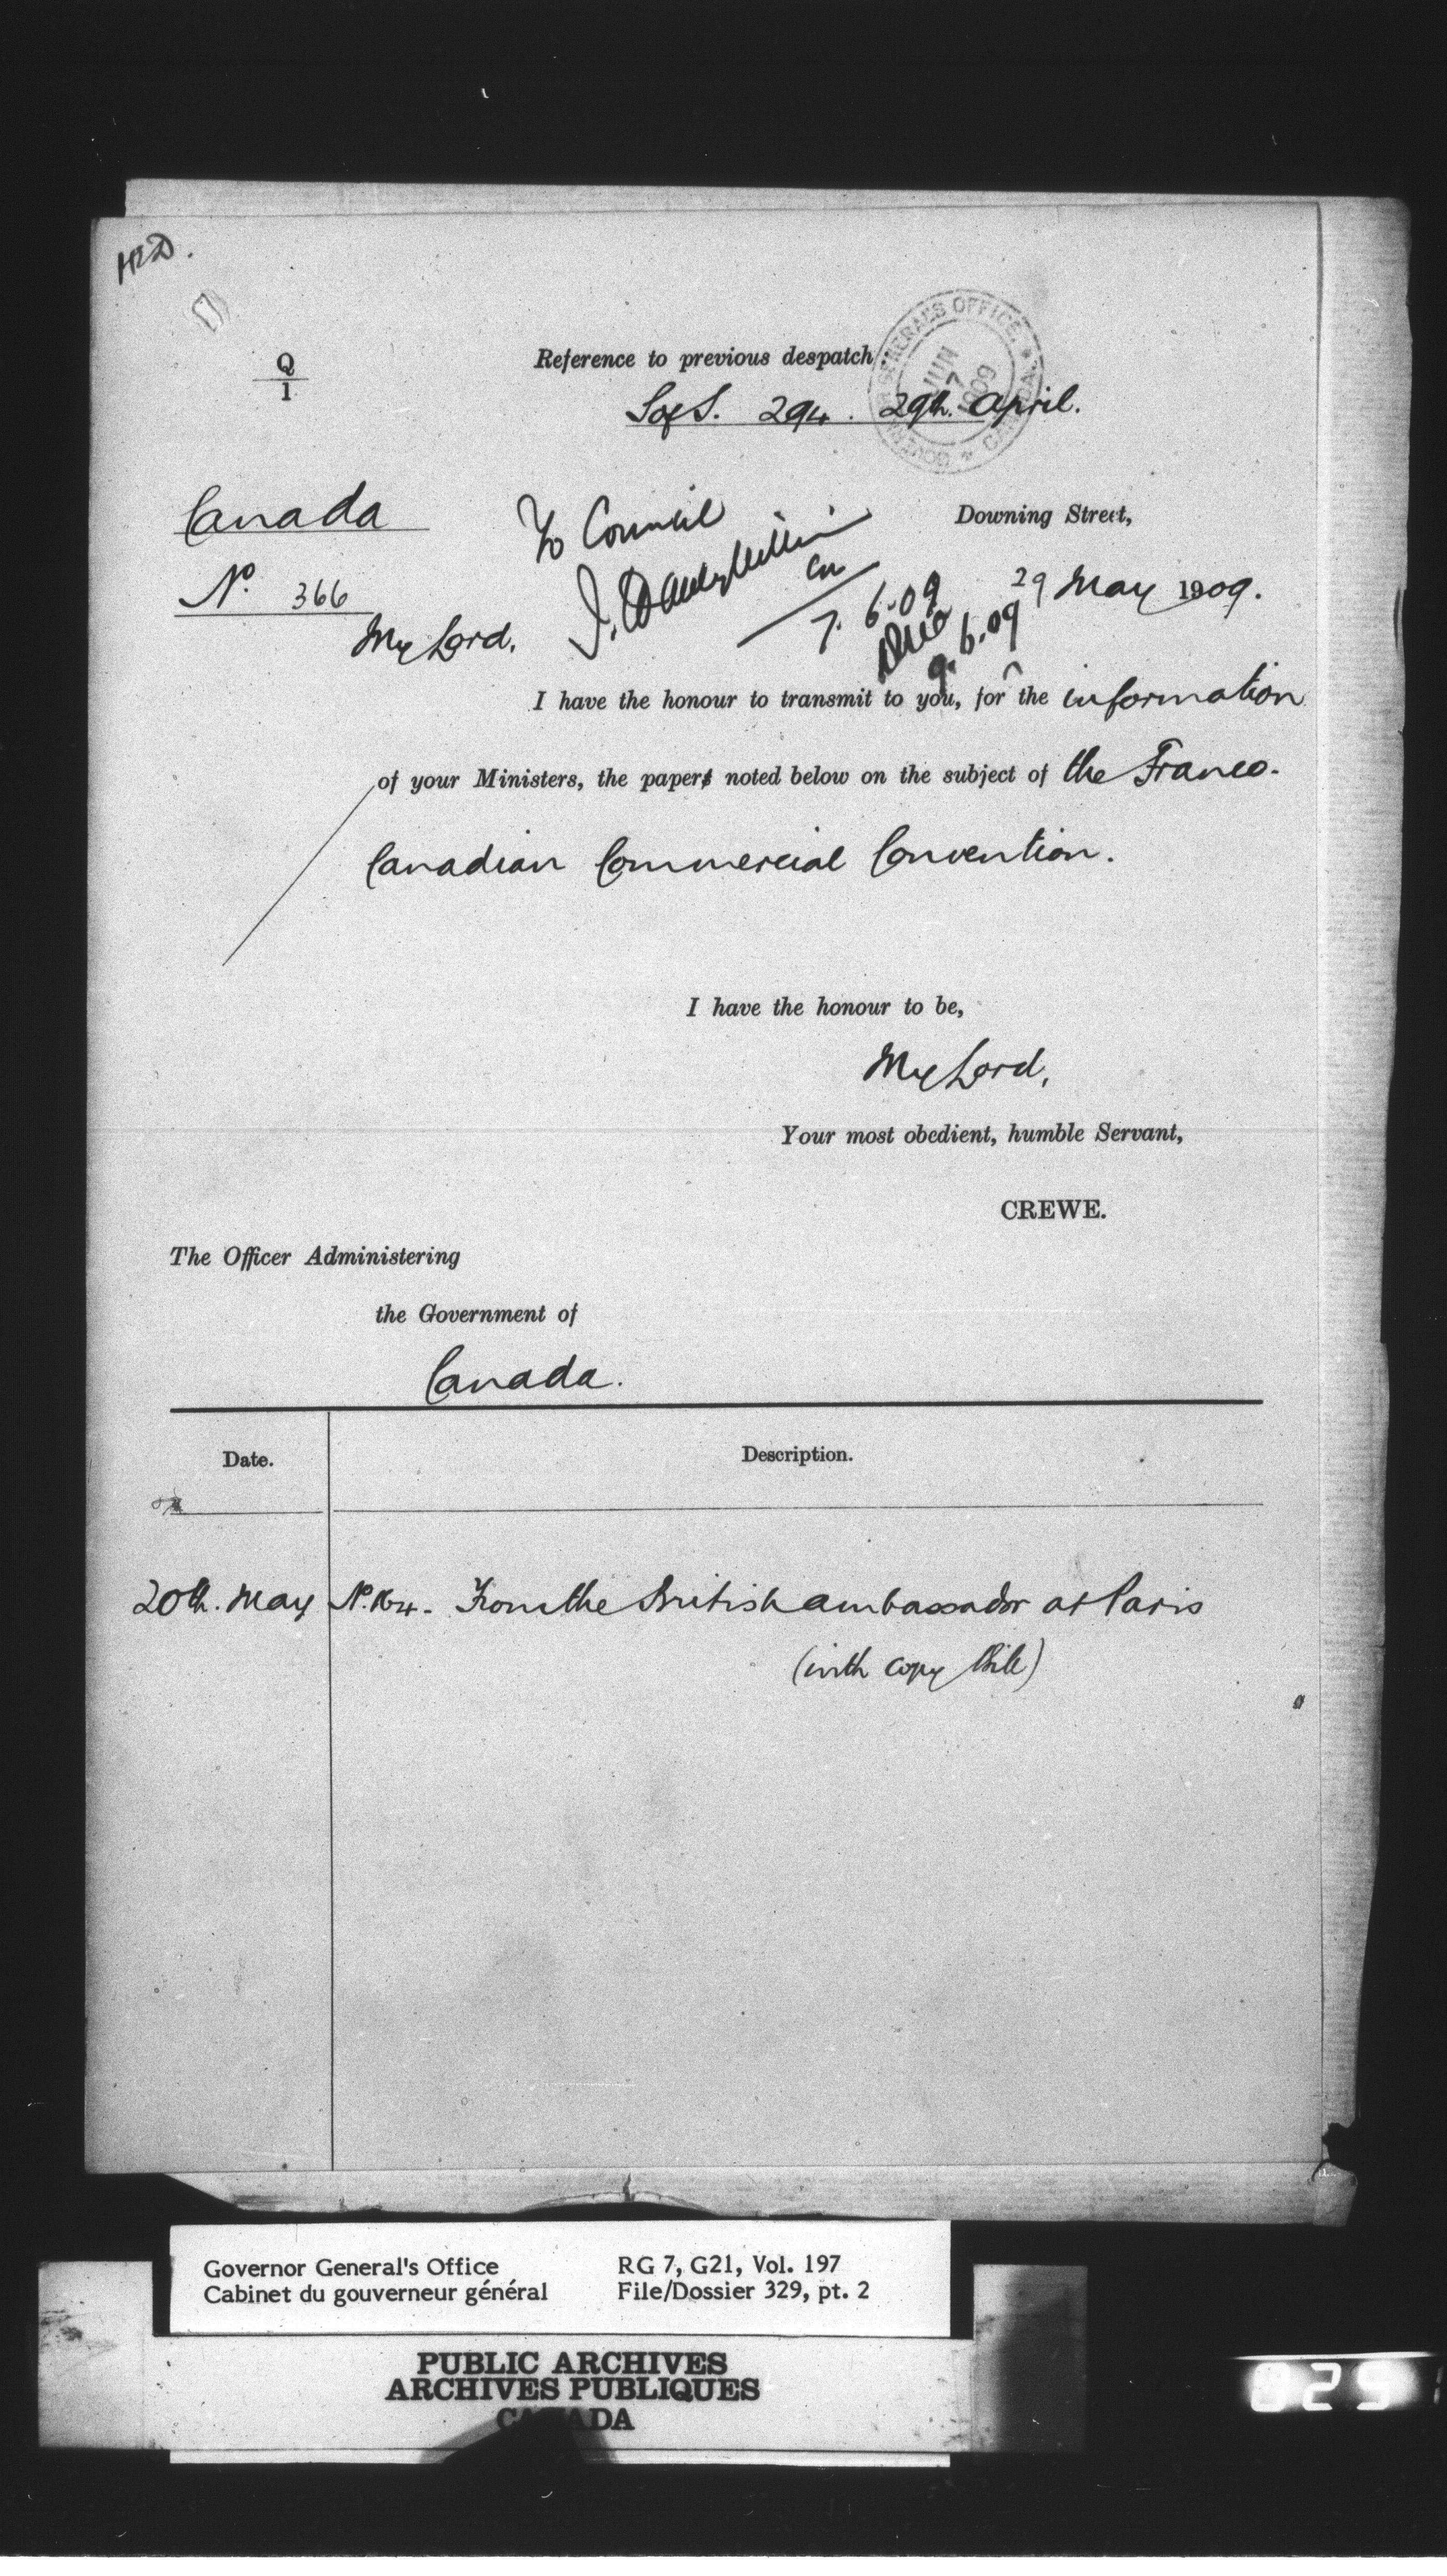 HRD.
Q
1
Reference to previous despatch:
SofS. 294. 29th. April.
GOVERNOR GENERAL'S OFFICE, CANADA
JUN
7
1909
Canada
To Council
Downing Street,
No. 366
7. 6.09
29 May 1909.
9. 6.09
My Lord,
I have the honour to transmit to you, for the information
of your Ministers, the papers noted below on the subject of the Franco-
Canadian Commercial Convention.
I have the honour to be,
My Lord,
Your most obedient, humble Servant,
CREWE.
The Officer Administering
the Government of
Canada.
Date.
Description.
20th. May
No. 164. From the British ambassador at Paris
(with copy Bill)
Governor General's Office
Cabinet du gouverneur général
RG 7, G21, Vol. 197
File/Dossier 329, pt. 2
PUBLIC ARCHIVES
ARCHIVES PUBLIQUES
CANADA
825